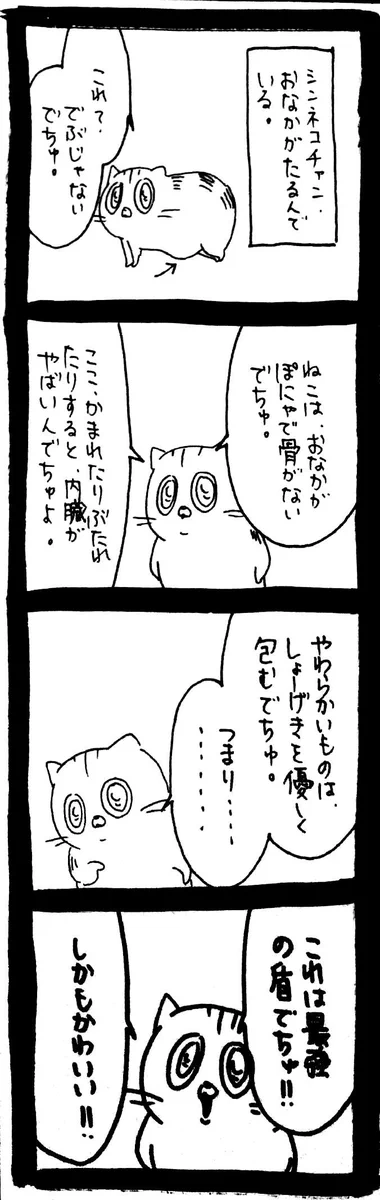 シンネコチャン、
おなかがたるんで
いる。
これ？
でぶじゃない
でちゅ。
ねこは、おなかが
ぽにゃで骨がない
でちゅ。
ここ、かまれたりぶたれ
たりすると、内臓が
やばいんでちゅよ。
やわらかいものは、
しょーげきを優しく
包むでちゅ。
つまり‥‥
‥‥‥‥
これは最強
の盾でちゅ!!
しかもかわいい!!